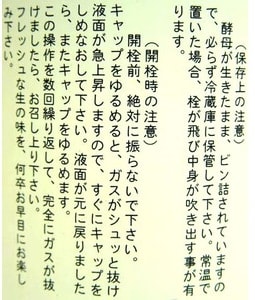 (保存上の注意)
酵母が生きたまま、ビン詰されていますの
で、必らず冷蔵庫に保管して下さい。常温で
置いた場合、栓が飛び中身が吹き出す事が有
ります。
(開栓時の注意)
開栓前、絶対に振らないで下さい。
キャップをゆるめると、ガスがシュッと抜け
液面が急上昇しますので、すぐにキャップを
しめなおして下さい。液面が元に戻りました
ら、またキャップをゆるめます。
この操作を数回繰り返して、完全にガスが抜
けましたら、お召し上り下さい。
フレッシュな生の味を、何卒お早目にお楽し
み下さい。